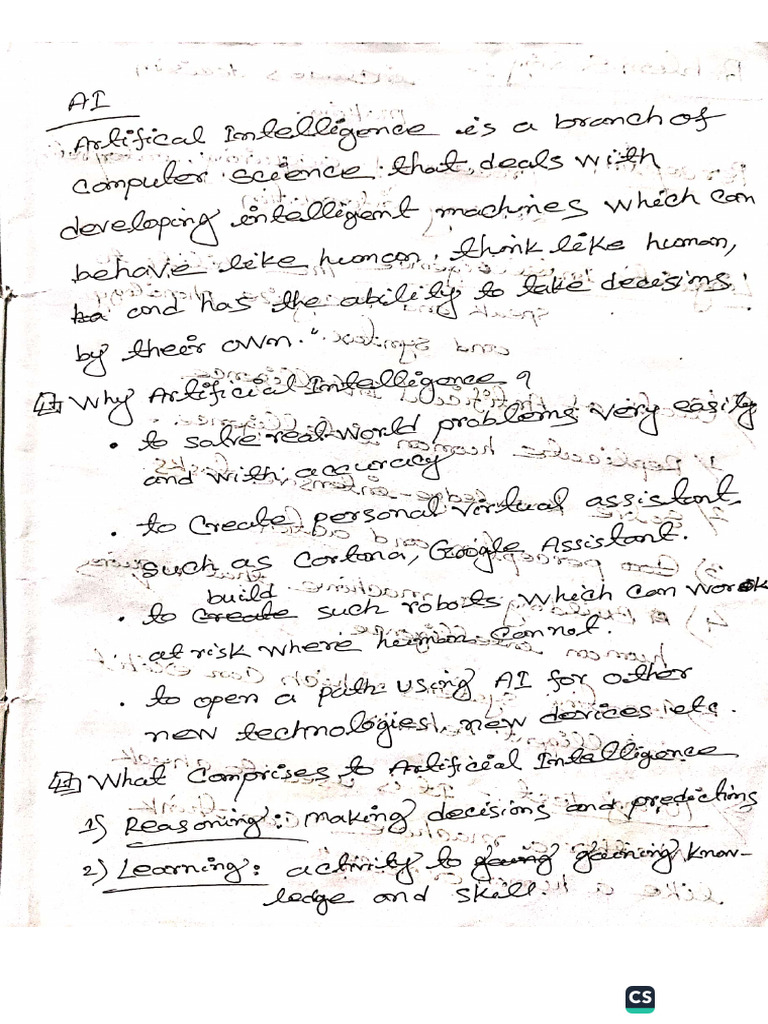 AI
Artifical Intelligence is a branch of
computer science that deals with
developing intelligent machines which can
behave like human, think like human,
ba and has the ability to take decisins
by their own."
Why Artificial Intelligence ?
• to solve real-world problems very easily
and with accuracy
• to Create personal virtual assistant
such as Cortona, Google Assistant.
build
• to create such robots which can work
at risk where human cannot.
• to open a path using AI for other
new technologies, new devices etc.
What Comprises to Artificial Intelligence
1) Reasoning: making decisions and predictins
2) Learning: activity to gaining know-
ledge and skill.
CS